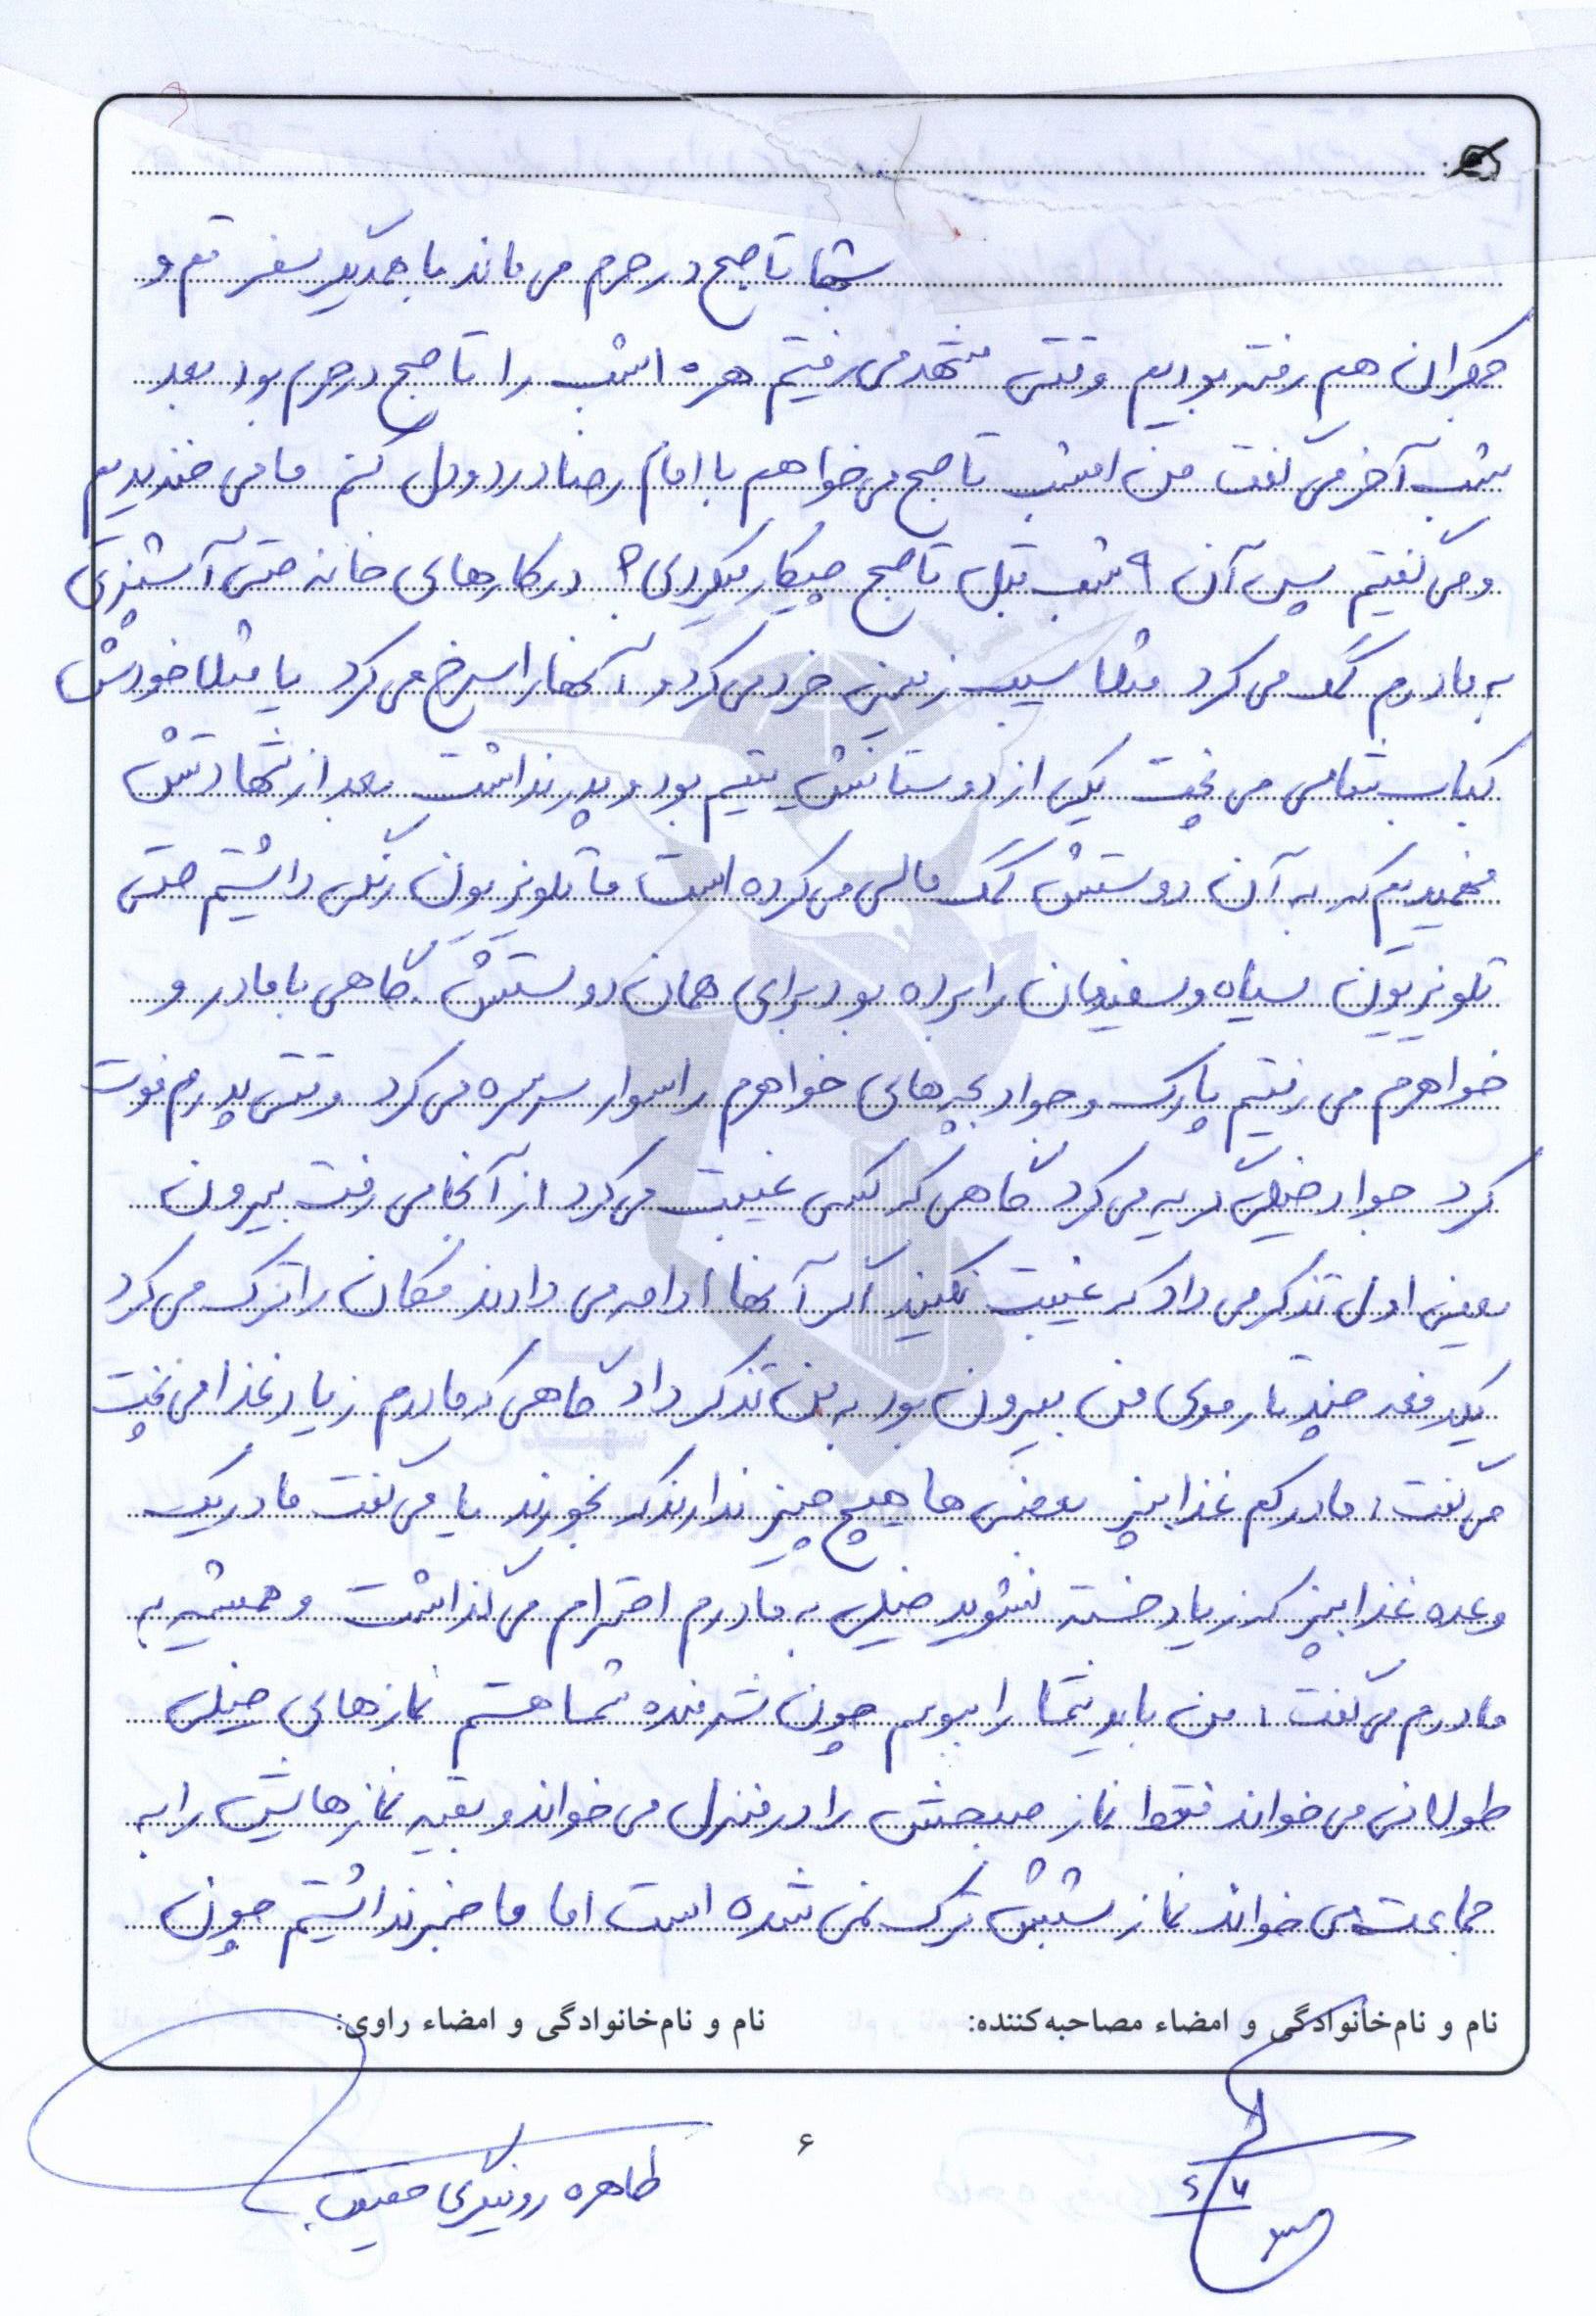 شبها تا صبح در حرم می ماند با همدیگر سفر قم و
جمکران هم رفته بودیم وقتی مشهد می رفتیم هر ۱۰ شب را تا صبح در حرم بود بعد
شب آخر می گفت من امشب تا صبح می خواهم با امام رضا درد ودل کنم ما می خندیدیم
و می گفتیم پس آن ۹ شب قبل تا صبح چیکار میکردی؟ در کارهای خانه حتی آشپزی
به مادرم کمک می کرد مثلا سیب زمینی خرد می کرد و آنها را سرخ می کرد یا مثلا خودش
کباب شامی می پخت یکی از دوستانش یتیم بود و پدر نداشت بعد از شهادتش
فهمیدیم که به آن دوستش کمک مالی می کرده است ما تلویزیون رنگی داشتیم حتی
تلویزیون سیاه و سفیدمان را برده بود برای همان دوستش. گاهی با مادر و
خواهرم می رفتیم پارک و جواد بچه های خواهرم را سوار سرسره می کرد وقتی پدرم فوت
کرد جواد خیلی گریه می کرد گاهی که کسی غیبت می کرد از آنجا می رفت بیرون
یعنی اول تذکر می داد که غیبت نکنید اگر آنها ادامه می دادند مکان را ترک می کرد
یکدفعه چند تار موی من بیرون بود به من تذکر داد گاهی که مادرم زیاد غذا می پخت
می گفت: مادر کم غذا بپز بعضی ها هیچ چیز ندارند که بخورند یا می گفت مادر یک
وعده غذا بپز که زیاد خسته نشوید خیلی به مادرم احترام می گذاشت و همیشه به
مادرم می گفت: من باید شما را ببوسم چون شرمنده شما هستم نمازهای خیلی
طولانی می خواند فقط نماز صبحش را در منزل می خواند و بقیه نمازهایش را به
جماعت می خواند نماز شبش ترک نمی شده است اما ما خبر نداشتیم چون
نام و نام‌خانوادگی و امضاء مصاحبه‌کننده: نام و نام‌خانوادگی و امضاء راوی:
۶
طاهره رونیگری